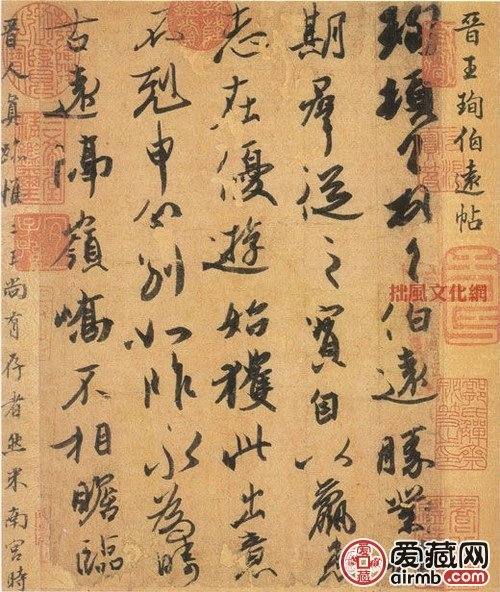 晉王珣伯遠帖
珣頓首頓首伯遠勝業
期羣從之寶自以羸患
志在優遊始獲此出意
不剋申分別如昨永為疇
古遠隔嶺嶠不相瞻臨
晉人真跡惟二王尚有存者然米南宮時
拙風文化網
爱藏网
airmb.com